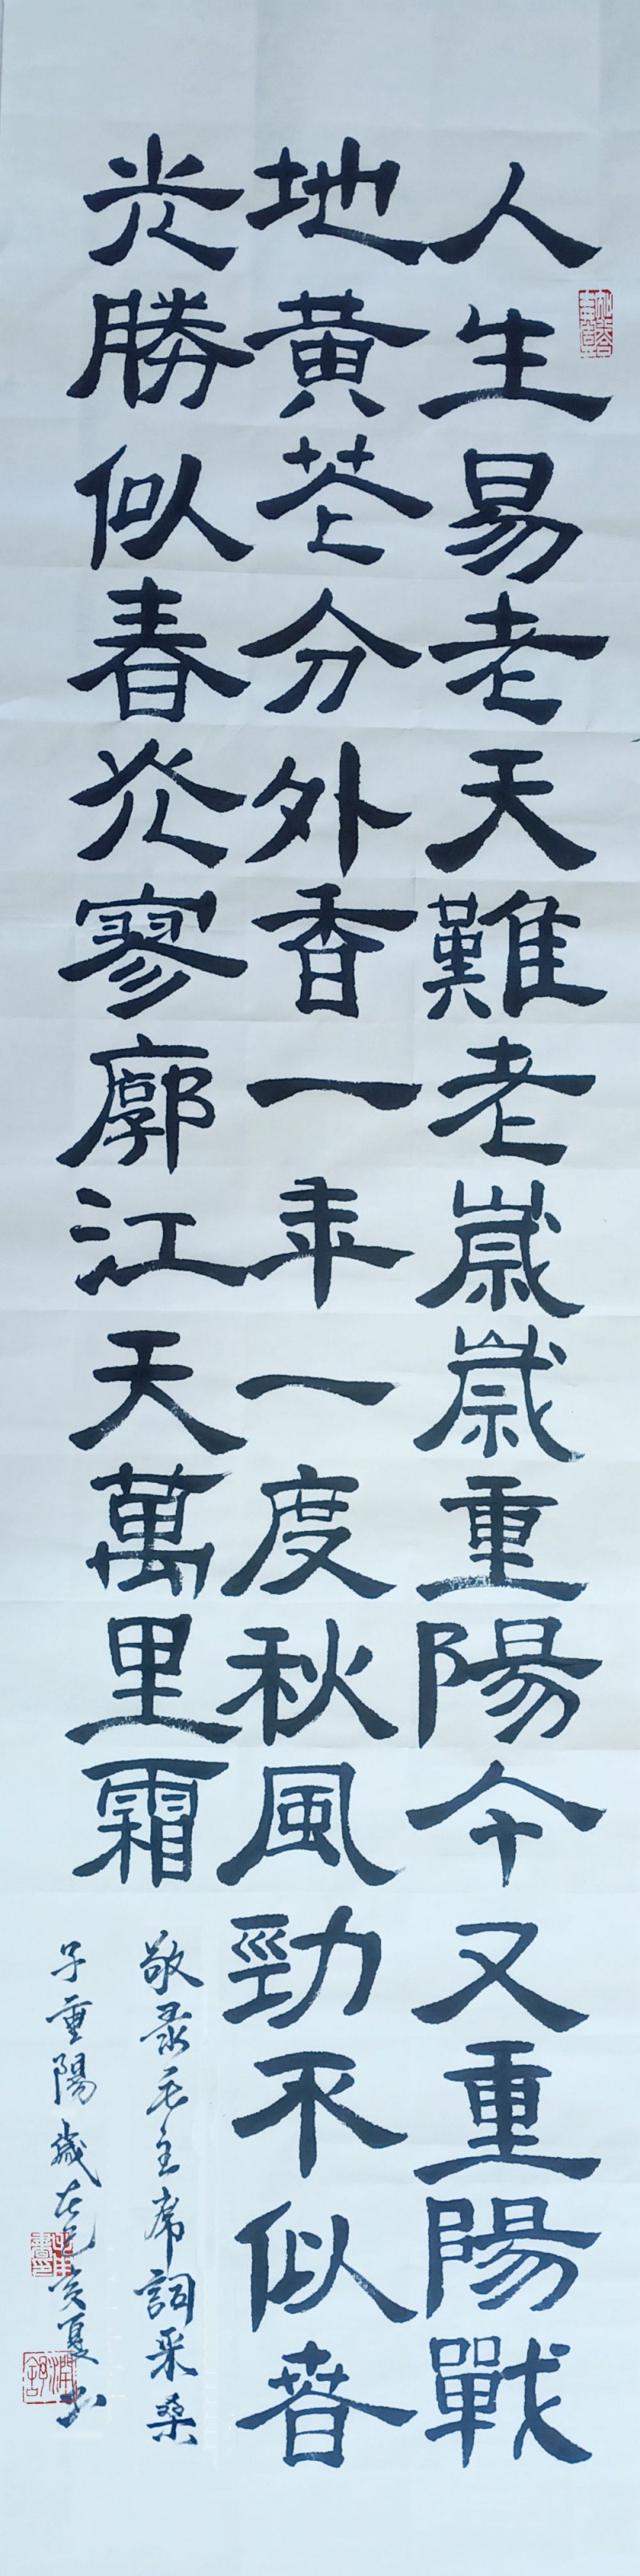 人生易老天難老歲歲重陽今又重陽戰
地黃花分外香一年一度秋風勁不似春
光勝似春光寥廓江天萬里霜
敬录毛主席詞采桑
子重陽歲在己亥夏书